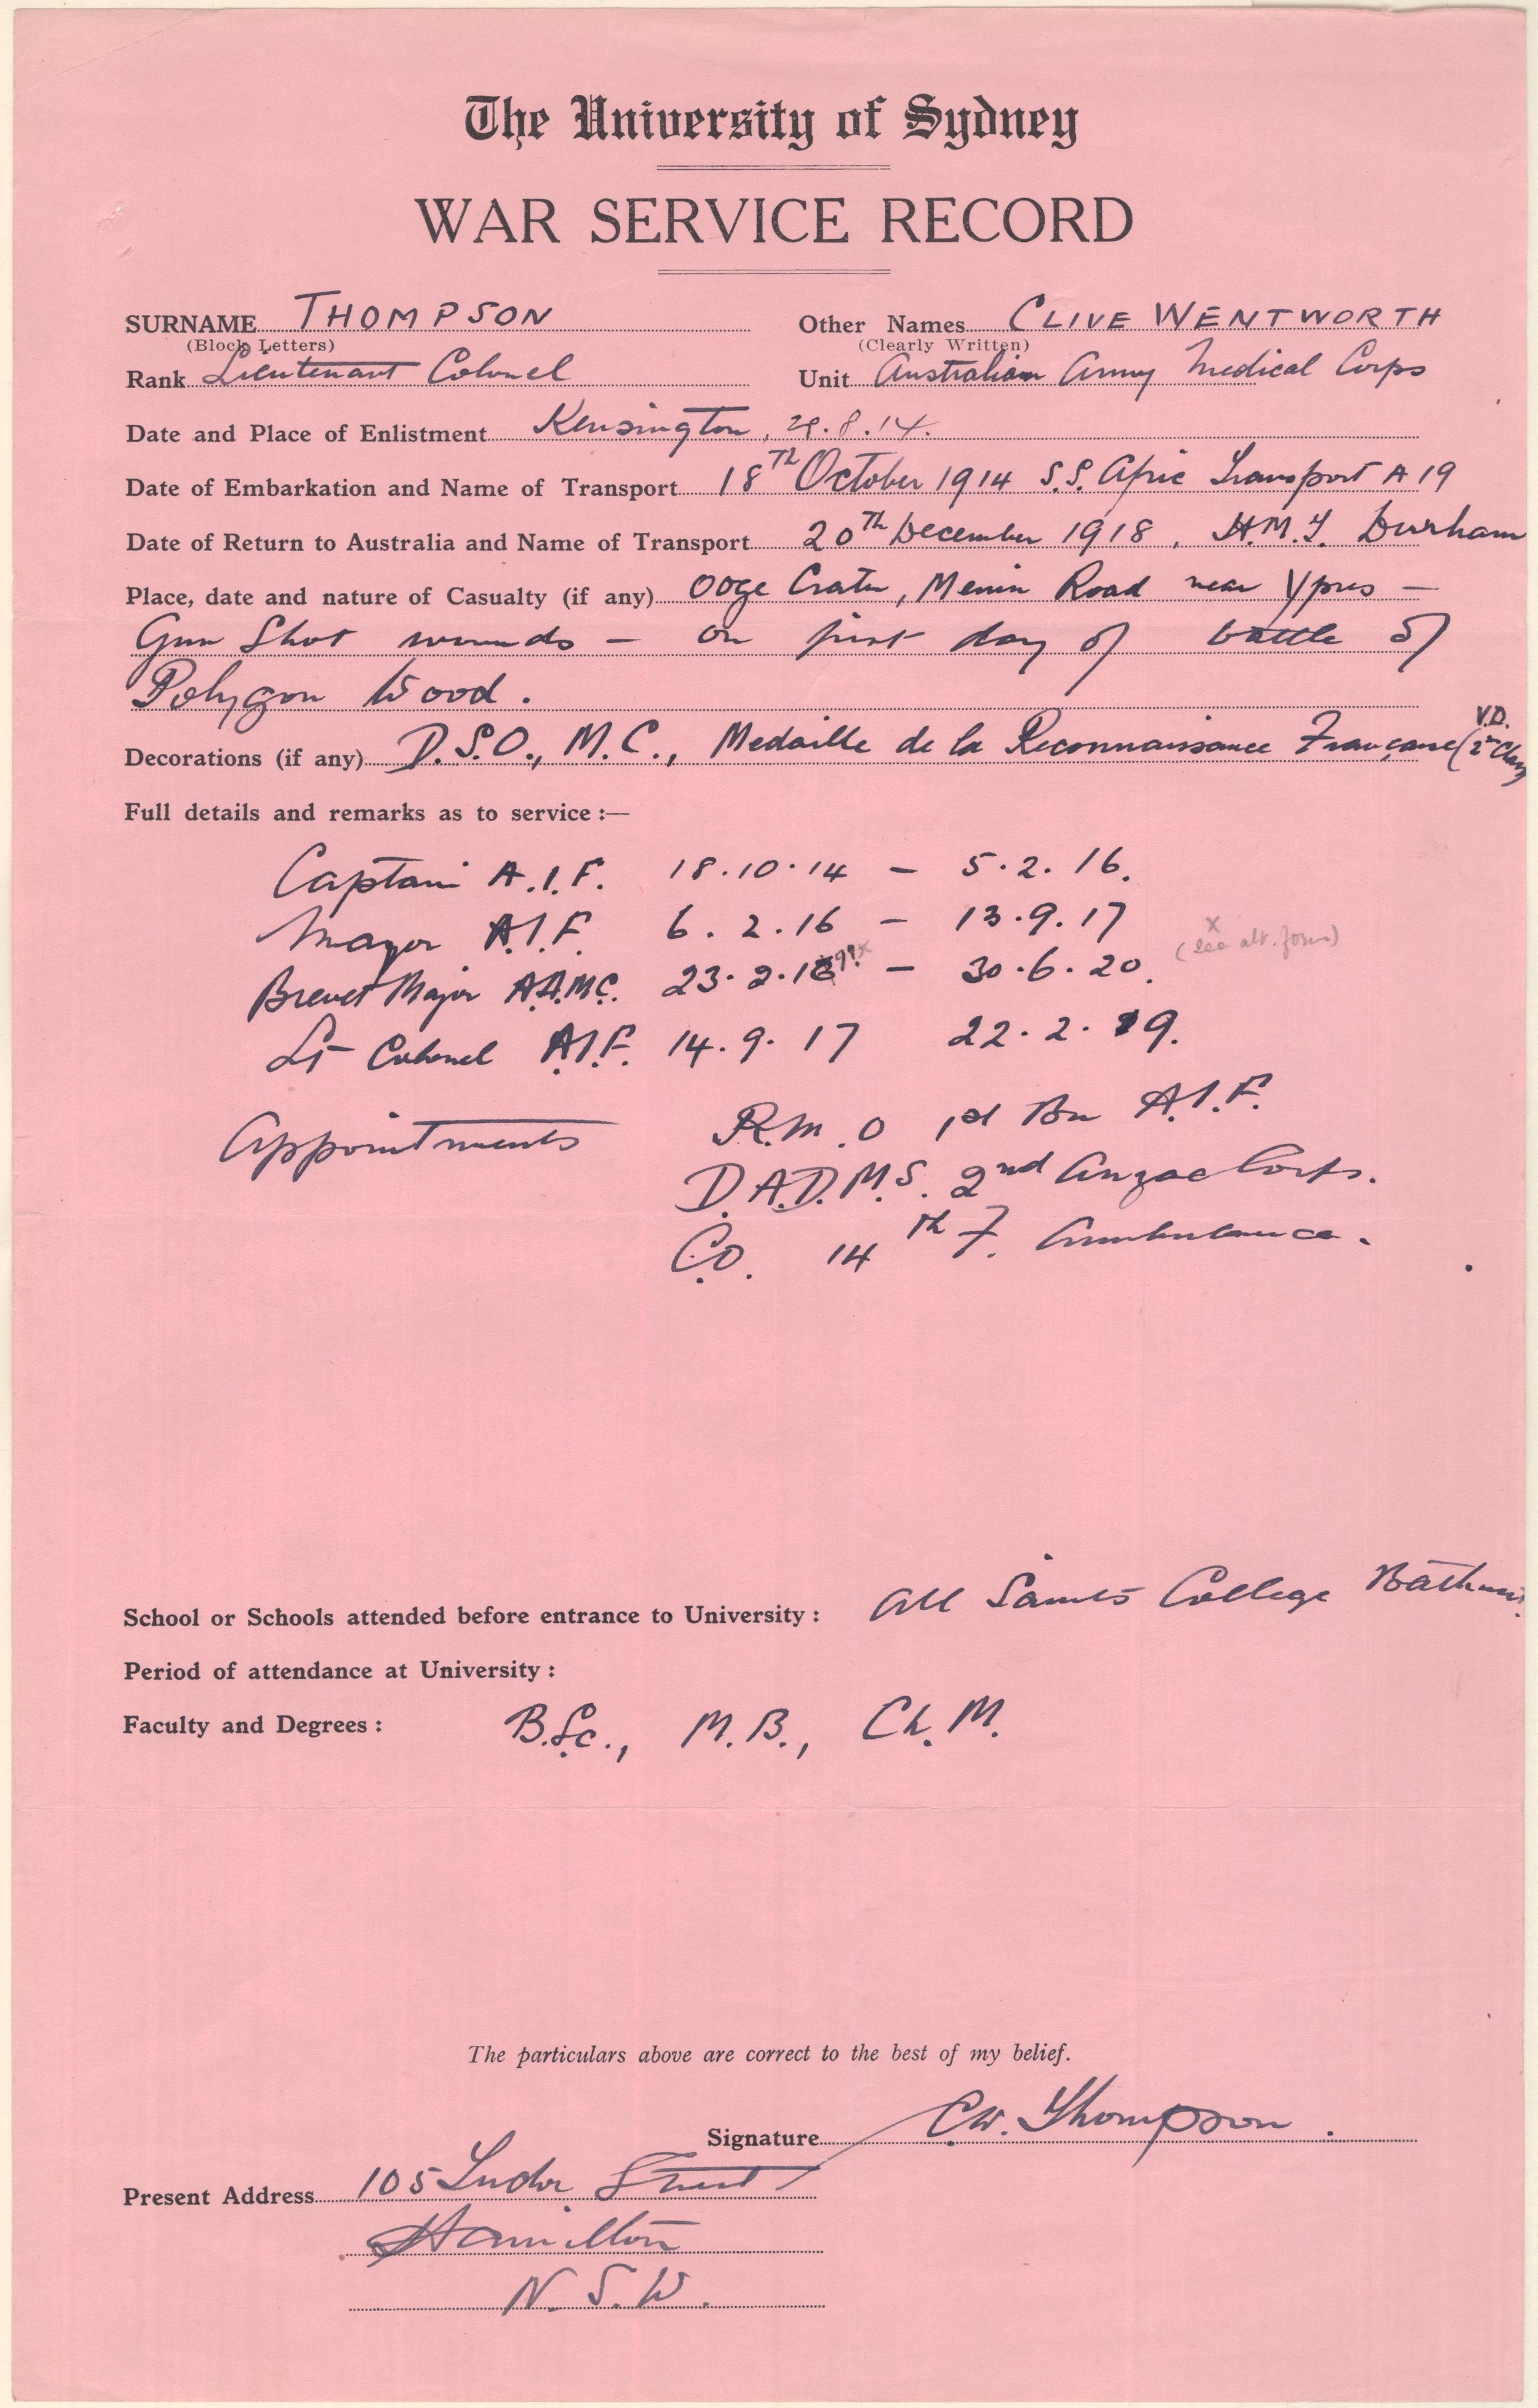 The University of Sydney
WAR SERVICE RECORD
SURNAME THOMPSON Other Names CLIVE WENTWORTH
(Block Letters) (Clearly Written)
Rank Lieutenant Colonel Unit Australian Army Medical Corps
Date and Place of Enlistment Kensington, 29.8.14.
Date of Embarkation and Name of Transport 18TH October 1914 S.S. Afric Transport A 19
Date of Return to Australia and Name of Transport 20Th December 1918, H.M.T. Durham
Place, date and nature of Casualty (if any) Ooge Crater, Menin Road near Ypres —
Gun Shot wounds — on first day of battle of
Polygon Wood.
Decorations (if any) D.S.O., M.C., Medaille de la Reconnaissance Française (2nd Class V.D.
Full details and remarks as to service :—
Captain A.I.F. 18.10.14 — 5.2.16.
Major A.I.F. 6.2.16 — 13.9.17
Brevet Major A.A.M.C. 23.2.18 19?x — 30.6.20. x (see alt. form)
Lt Colonel A.I.F. 14.9.17 22.2.19.
Appointments R.M.O 1st Bn A.I.F.
D.A.D.M.S. 2nd Anzac Corps.
C.O. 14th F. Ambulance.
School or Schools attended before entrance to University : All Saints College Bathurst.
Period of attendance at University :
Faculty and Degrees : B.Sc., M.B., Ch.M.
The particulars above are correct to the best of my belief.
Signature C.W. Thompson.
Present Address 105 Tudor Street
Hamilton
N.S.W.